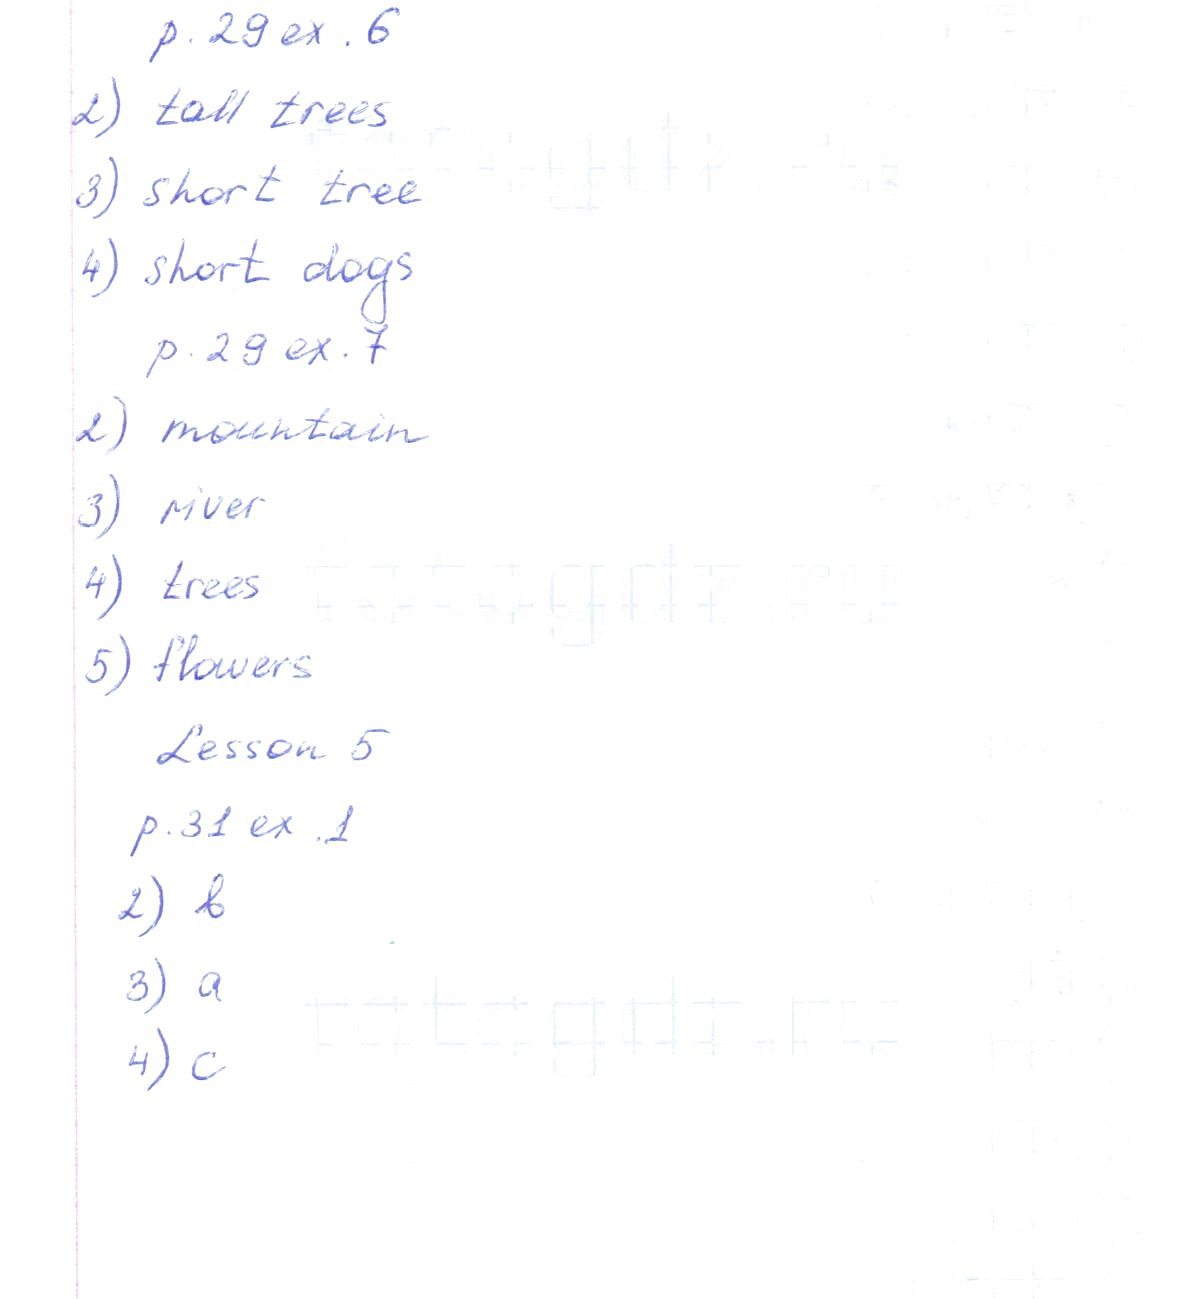 p. 29 ex. 6
2) tall trees
3) short tree
4) short dogs
p. 29 ex. 7
2) mountain
3) river
4) trees
5) flowers
Lesson 5
p. 31 ex. 1
2) b
3) a
4) c
fotogdz.ru
fotogdz.ru
fotogdz.ru